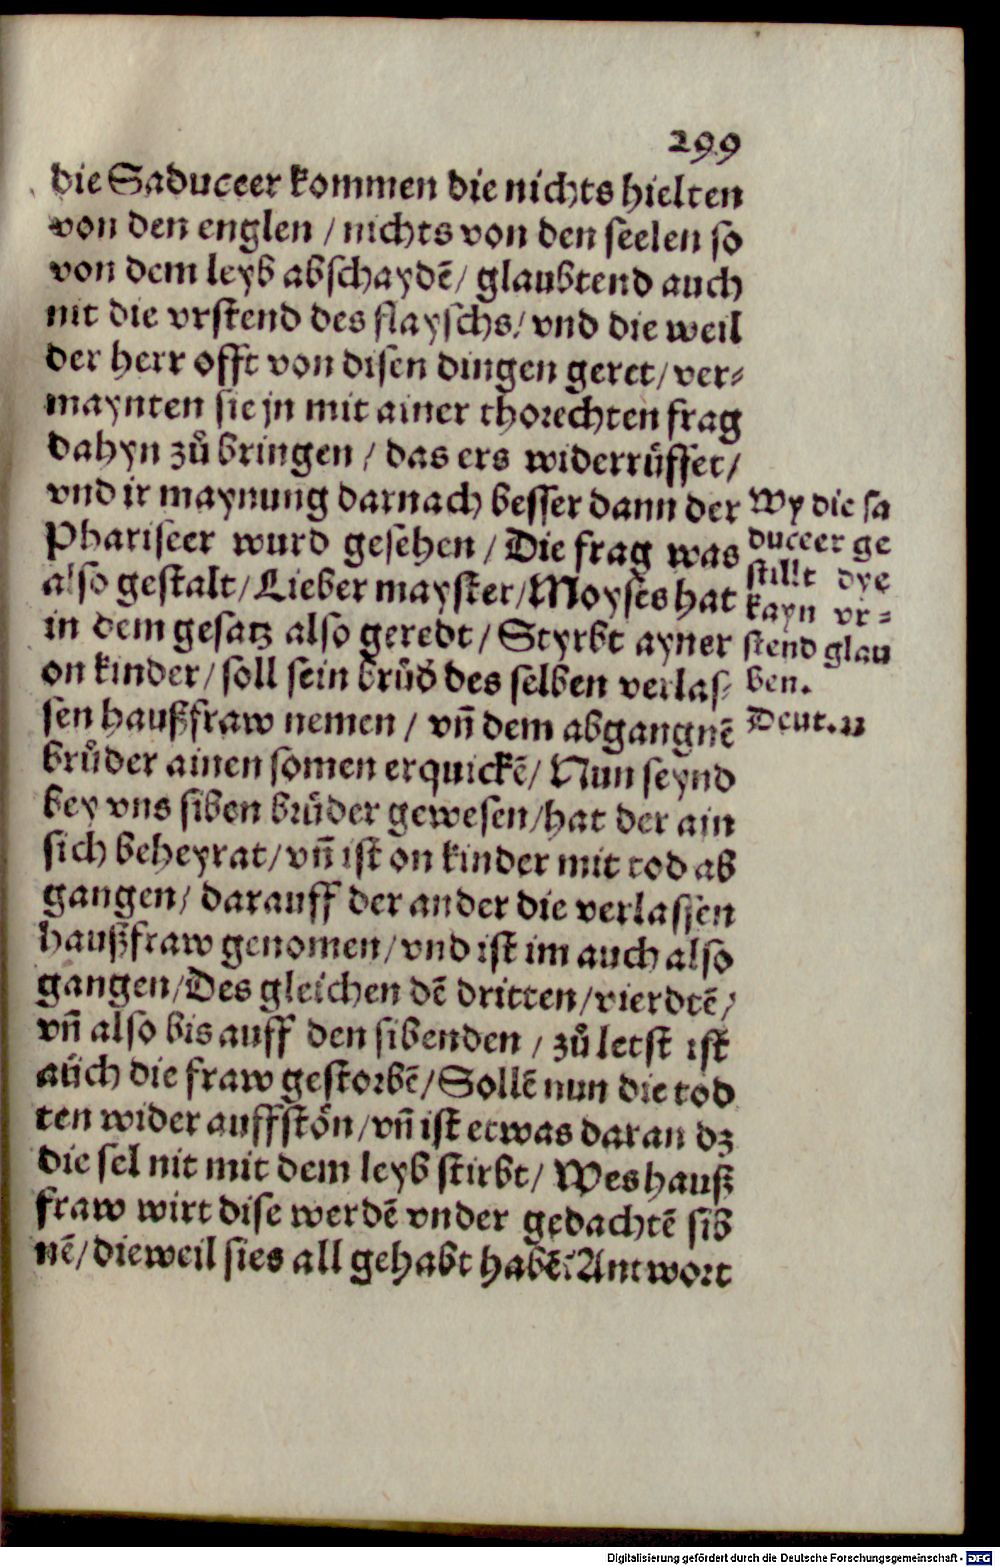 299
die Saduceer kommen die nichts hielten
von den englen / nichts von den seelen so
von dem leyb abschaydẽ / glaubtend auch
nit die vrstend des flayschs / vnd die weil
der herr offt von disen dingen geret / ver⸗
maynten sie jn mit ainer thorechten frag
dahyn zů bringen / das ers widerrüffet /
vnd ir maynung darnach besser dann der
Phariseer wurd gesehen / Die frag was
also gestalt / Lieber mayster / Moyses hat
in dem gesatz also geredt / Styrbt ayner
on kinder / soll sein brůd des selben verlas⸗
sen haußfraw nemen / vñ dem abgangnẽ
brůder ainen somen erquickẽ / Nun seynd
bey vns siben brůder gewesen / hat der ain
sich beheyrat / vñ ist on kinder mit tod ab
gangen / darauff der ander die verlassen
haußfraw genomen / vnd ist im auch also
gangen / Des gleichen dẽ dritten / vierdtẽ /
vñ also bis auff den sibenden / zů letst ist
auch die fraw gestorbẽ / Sollẽ nun die tod
ten wider auffstön / vñ ist etwas daran dz
die sel nit mit dem leyb stirbt / Wes hauß
fraw wirt dise werdẽ vnder gedachtẽ sib
nẽ / dieweil sies all gehabt habẽ: Antwort
Wy die sa
duceer ge
stillt dye
kayn vr⸗
stend glau
ben.
Deut.
Digitalisierung gefördert durch die Deutsche Forschungsgemeinschaft - DFG